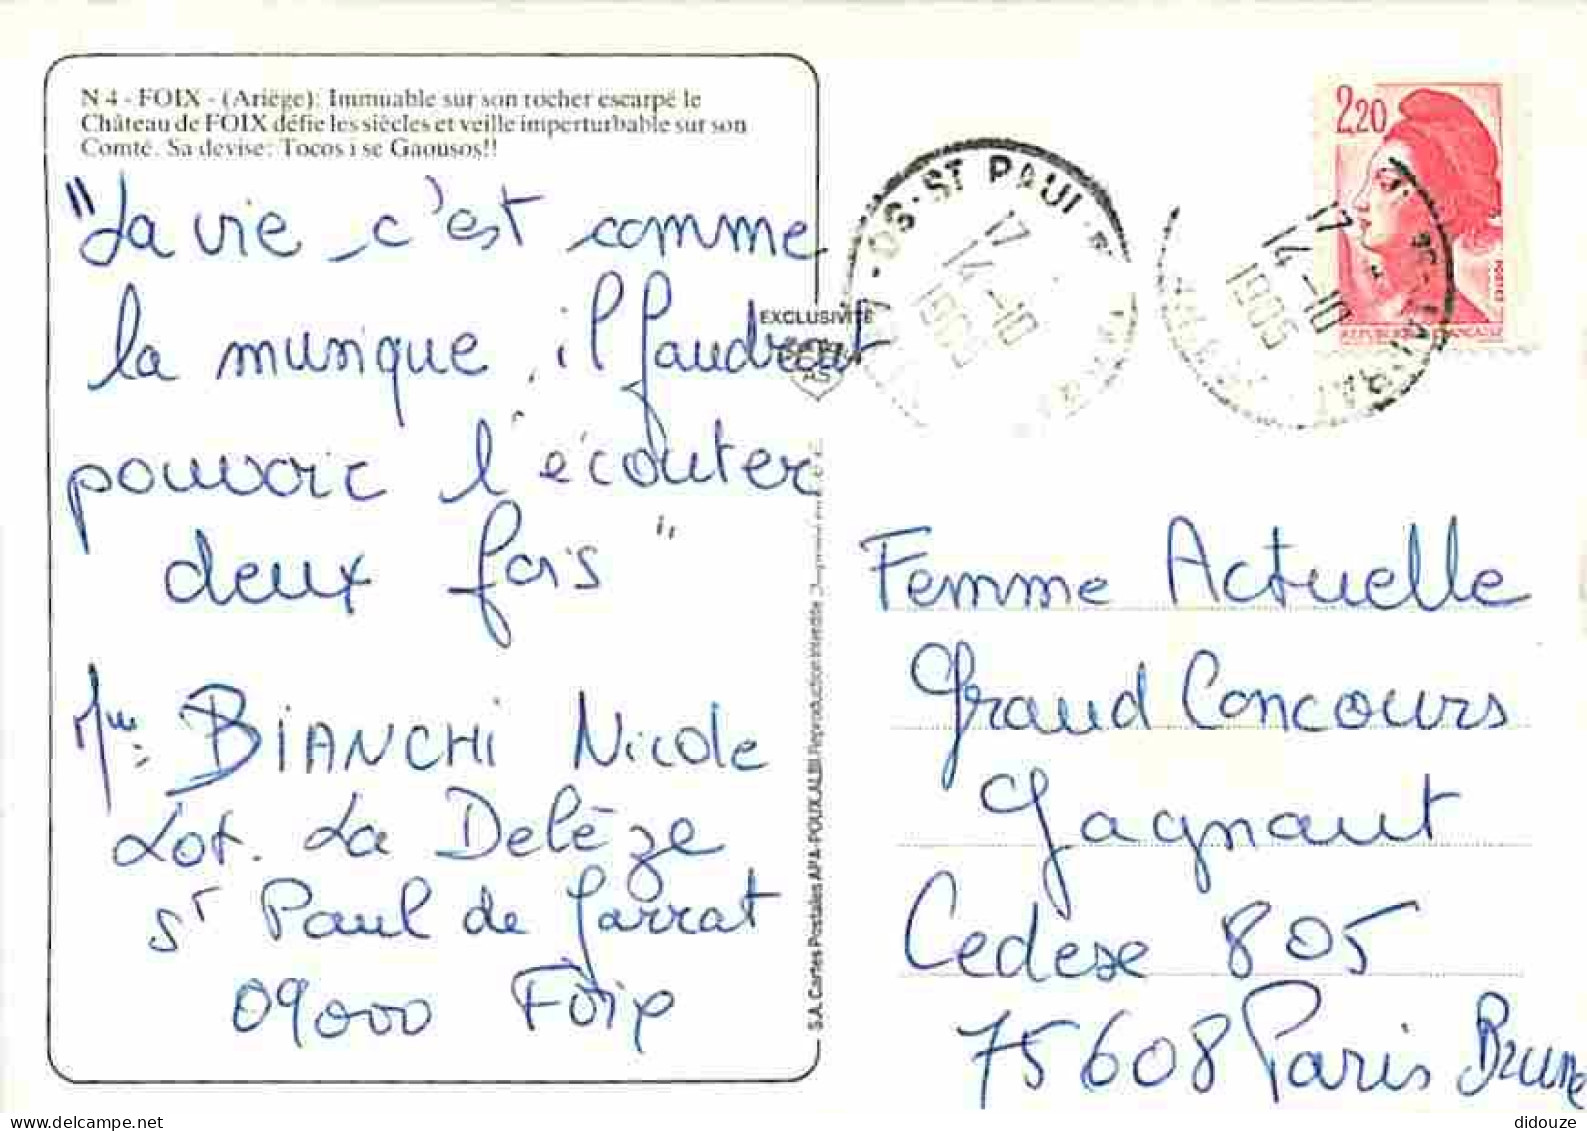 N 4 - FOIX - (Ariège): Immuable sur son rocher escarpé le
Château de FOIX défie les siècles et veille imperturbable sur son
Comté. Sa devise: Tocos i se Gaousos!!
"La vie c'est comme
la musique, il faudrait
pouvoir l'écouter
deux fois"
Mme: BIANCHI Nicole
Lot. La Delèze
St Paul de Jarrat
09000 Foix
EXCLUSIVITÉ
APA
POUX
AS
S.A. Cartes Postales APA-POUX ALBI Reproduction Interdite
2,20
REPUBLIQUE FRANÇAISE
ST PAUL
17
14-10
1985
17
14-10
1985
Femme Actuelle
Grand Concours
Gagnant
Cedexe 805
75608 Paris Brune
didouze